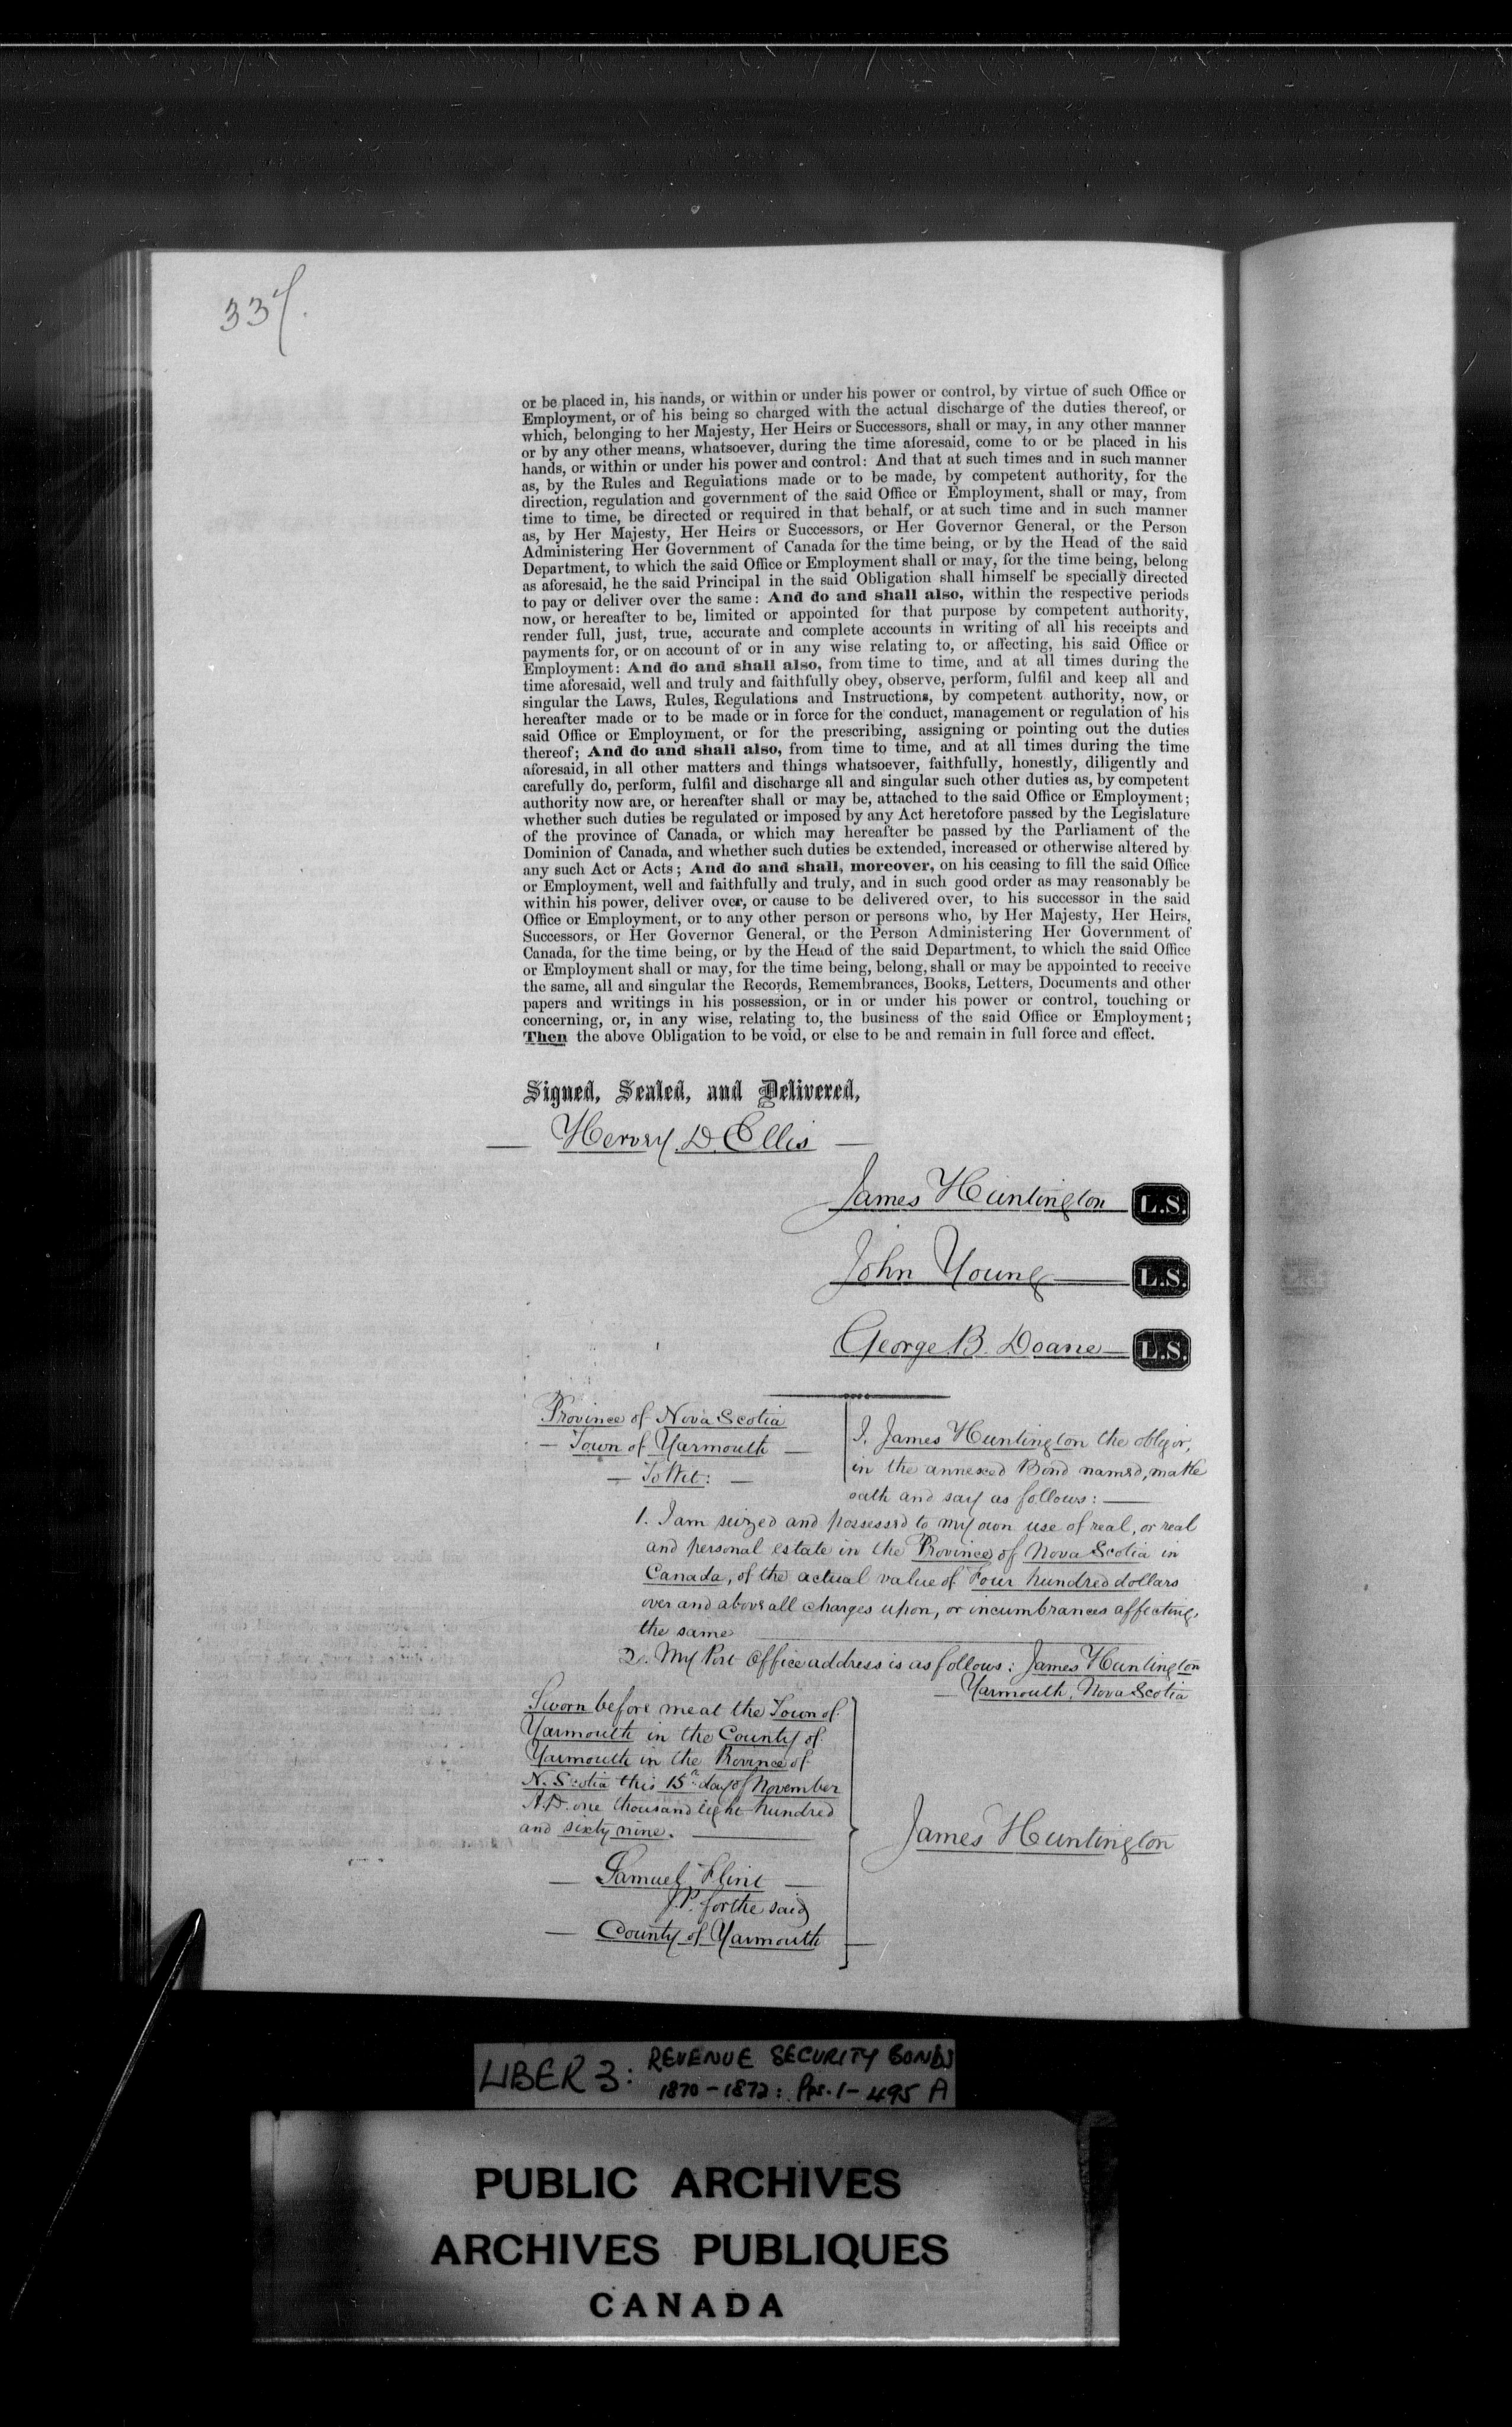 337.
or be placed in, his hands, or within or under his power or control, by virtue of such Office or
Employment, or of his being so charged with the actual discharge of the duties thereof, or
which, belonging to her Majesty, Her Heirs or Successors, shall or may, in any other manner
or by any other means, whatsoever, during the time aforesaid, come to or be placed in his
hands, or within or under his power and control: And that at such times and in such manner
as, by the Rules and Regulations made or to be made, by competent authority, for the
direction, regulation and government of the said Office or Employment, shall or may, from
time to time, be directed or required in that behalf, or at such time and in such manner
as, by Her Majesty, Her Heirs or Successors, or Her Governor General, or the Person
Administering Her Government of Canada for the time being, or by the Head of the said
Department, to which the said Office or Employment shall or may, for the time being, belong
as aforesaid, he the said Principal in the said Obligation shall himself be specially directed
to pay or deliver over the same: And do and shall also, within the respective periods
now, or hereafter to be, limited or appointed for that purpose by competent authority,
render full, just, true, accurate and complete accounts in writing of all his receipts and
payments for, or on account of or in any wise relating to, or affecting, his said Office or
Employment: And do and shall also, from time to time, and at all times during the
time aforesaid, well and truly and faithfully obey, observe, perform, fulfil and keep all and
singular the Laws, Rules, Regulations and Instructions, by competent authority, now, or
hereafter made or to be made or in force for the conduct, management or regulation of his
said Office or Employment, or for the prescribing, assigning or pointing out the duties
thereof; And do and shall also, from time to time, and at all times during the time
aforesaid, in all other matters and things whatsoever, faithfully, honestly, diligently and
carefully do, perform, fulfil and discharge all and singular such other duties as, by competent
authority now are, or hereafter shall or may be, attached to the said Office or Employment;
whether such duties be regulated or imposed by any Act heretofore passed by the Legislature
of the province of Canada, or which may hereafter be passed by the Parliament of the
Dominion of Canada, and whether such duties be extended, increased or otherwise altered by
any such Act or Acts; And do and shall, moreover, on his ceasing to fill the said Office
or Employment, well and faithfully and truly, and in such good order as may reasonably be
within his power, deliver over, or cause to be delivered over, to his successor in the said
Office or Employment, or to any other person or persons who, by Her Majesty, Her Heirs,
Successors, or Her Governor General, or the Person Administering Her Government of
Canada, for the time being, or by the Head of the said Department, to which the said Office
or Employment shall or may, for the time being, belong, shall or may be appointed to receive
the same, all and singular the Records, Remembrances, Books, Letters, Documents and other
papers and writings in his possession, or in or under his power or control, touching or
concerning, or, in any wise, relating to, the business of the said Office or Employment;
Then the above Obligation to be void, or else to be and remain in full force and effect.
Signed, Sealed, and Delivered,
— Hervey D. Ellis —
James Huntington L.S.
John Young L.S.
George B. Doane L.S.
Province of Nova Scotia
— Town of Yarmouth —
— To Wit: —
I, James Huntington the obligor,
in the annexed Bond named, make
oath and say as follows: —
1. I am seized and possessed to my own use of real, or real
and personal estate in the Province of Nova Scotia in
Canada, of the actual value of Four hundred dollars
over and above all charges upon, or incumbrances affecting,
the same
2. My Post Office address is as follows: James Huntington
— Yarmouth, Nova Scotia
Sworn before me at the Town of
Yarmouth in the County of
Yarmouth in the Province of
N. Scotia this 15th day of November
A.D. one thousand eight hundred
and sixty nine.
— Samuel Flint —
J.P. for the said
— County of Yarmouth —
James Huntington
LIBER 3: REVENUE SECURITY BONDS
1870-1872: Pps. 1-495 A
PUBLIC ARCHIVES
ARCHIVES PUBLIQUES
CANADA